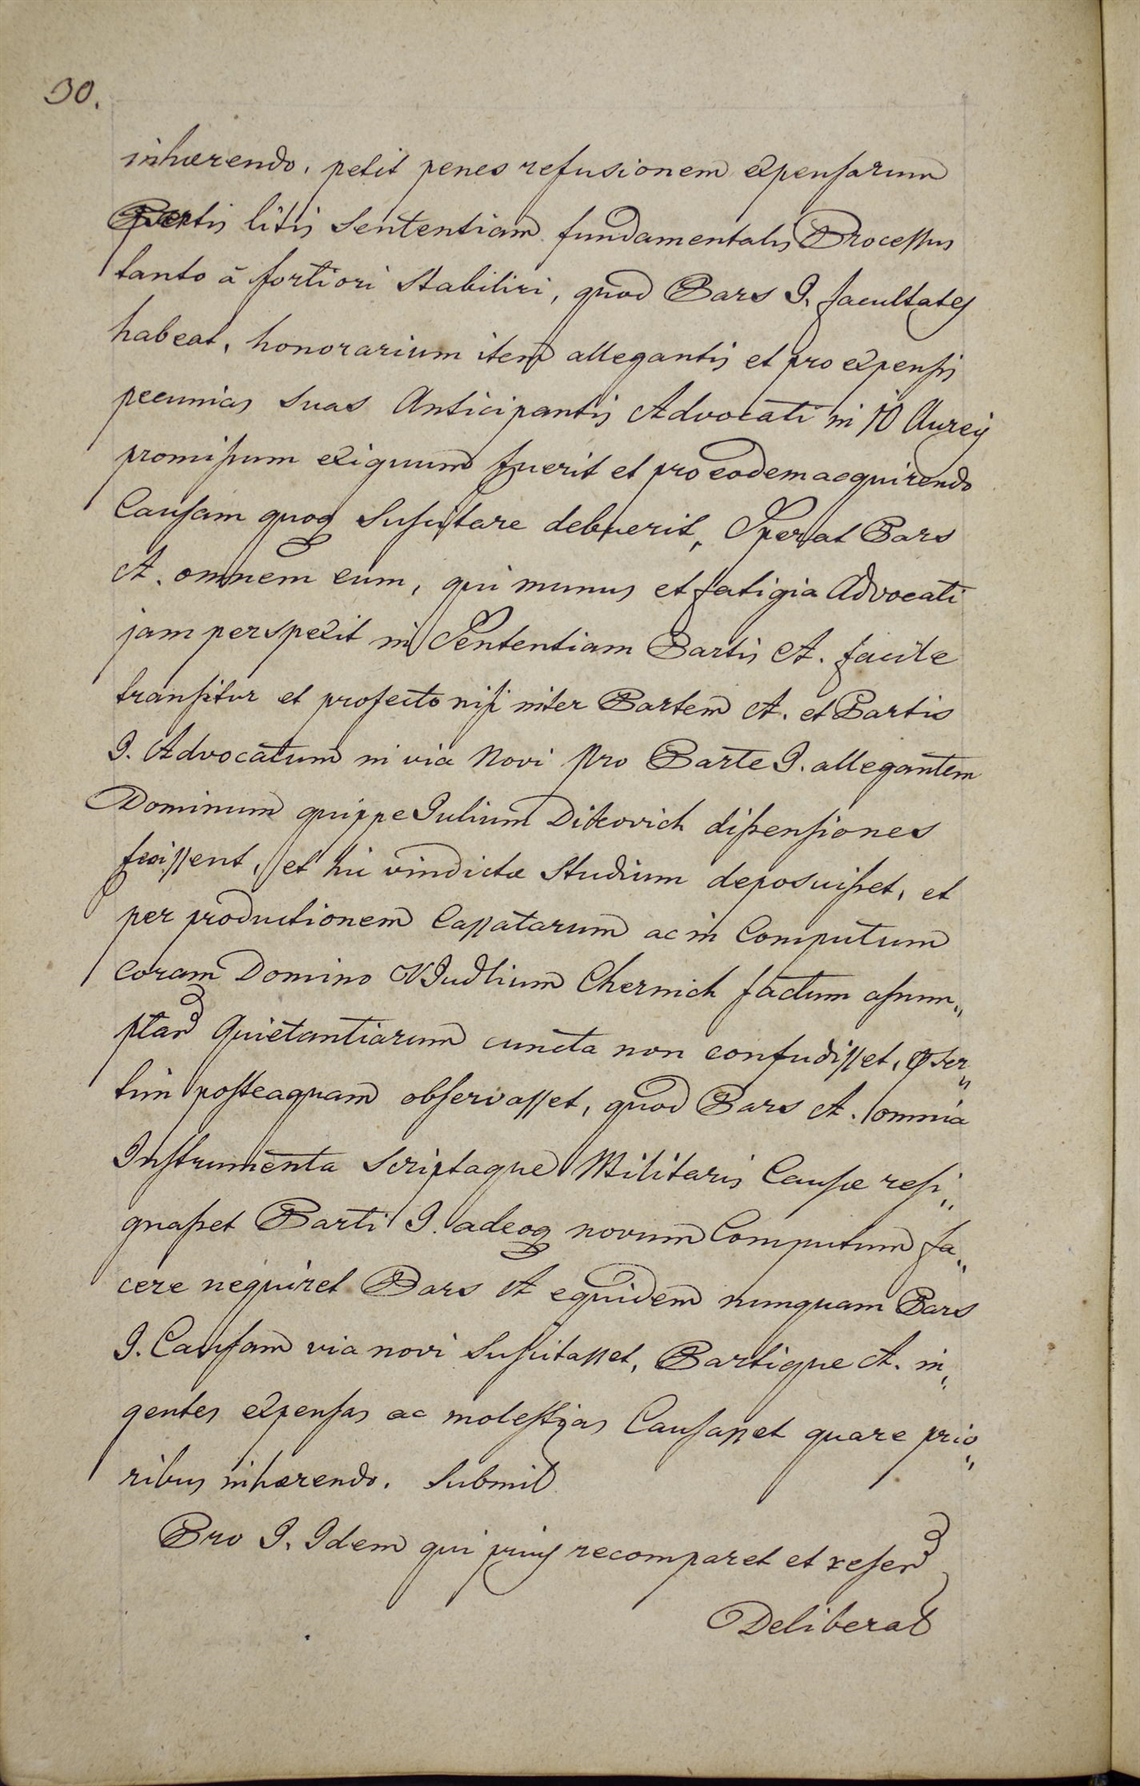 30.
inhærendo, petit penes refusionem expensarum
Partis litis Sententiam fundamentalis Processus
tanto à fortiori Stabiliri, quod Pars I. facultates
habeat, honorarium item allegantis et pro expensis
pecunias suas Anticipantis Advocati in 10 Aureis
promissum exiguum fuerit et pro eodem acquirendo
Causam quoq suscitare debuerit, Sperat Pars
A. omnem eum, qui munus et fatigia Advocati
jam perspexit in Sententiam Partis A. facile
transitur et profecto nisi inter Partem A. et Partis
I. Advocatum in via Novi pro Parte I. allegantem
Dominum quippe Julium Ditkovich dissensiones
fuissent, et hic vindictæ Studium deposuisset, et
per productionem Cassatarum ac in Computum
coram Domino Chernich factum assum„
ptar Quietantiarum cuncta non confudisset, præser„
tim posteaquam observasset, quod Pars A. omnia
Instrumenta scriptaque Militaris Causæ resi„
gnasset Parti I. adeoq novum Computum fa„
cere nequiret Pars A equidem nunquam Pars
I. Causam via novi suscitasset, Partique A. in„
gentes expensas ac molestias Causasset quare prio„
ribus inhærendo. Submit
Pro I. Idem qui prius recomparet et reser
Deliberat